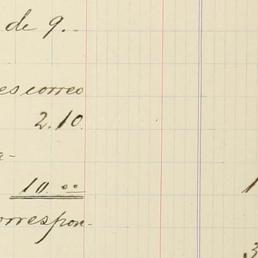 de 9.-
es correo
2.10.
a-
10.00
1
orrespon-
3